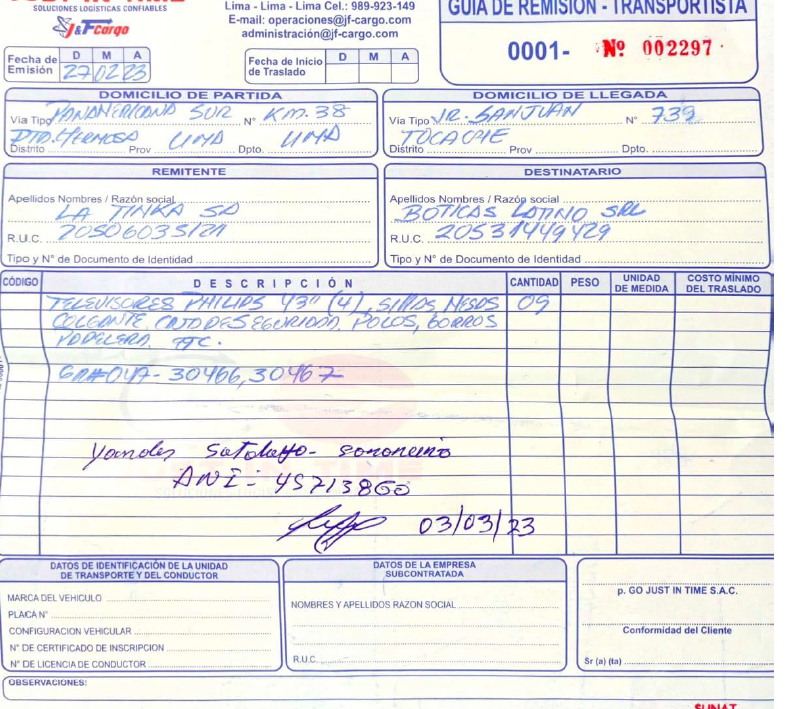 JUST IN TIME
SOLUCIONES LOGÍSTICAS CONFIABLES
J&F Cargo
Lima - Lima - Lima Cel.: 989-923-149
E-mail: operaciones@jf-cargo.com
administración@jf-cargo.com
GUIA DE REMISIÓN - TRANSPORTISTA
0001- Nº 002297
Fecha de Emisión D M A
27 02 23
Fecha de Inicio de Traslado D M A
DOMICILIO DE PARTIDA
Via Tipo PANAMERICANA SUR N° KM. 38
PTO. HERMOSA LIMA LIMA
Distrito Prov Dpto.
DOMICILIO DE LLEGADA
Via Tipo JR. SAN JUAN N° 739
TOCACHE
Distrito Prov Dpto.
REMITENTE
Apellidos Nombres / Razón social
LA TINKA SA
R.U.C. 20506035121
Tipo y N° de Documento de Identidad
DESTINATARIO
Apellidos Nombres / Razón social
BOTICAS LATINO SRL
R.U.C. 20531449429
Tipo y N° de Documento de Identidad
CÓDIGO DESCRIPCIÓN CANTIDAD PESO UNIDAD DE MEDIDA COSTO MÍNIMO DEL TRASLADO
TELEVISORES PHILIPS 43" (4), SILLAS, MESAS 09
COLGANTE, CAJA DE SEGURIDAD, POLOS, GORROS
PAPELERA, ETC.
GR#047- 30466, 30467
03/03/23
DATOS DE IDENTIFICACIÓN DE LA UNIDAD
DE TRANSPORTE Y DEL CONDUCTOR
MARCA DEL VEHICULO
PLACA N°
CONFIGURACION VEHICULAR
N° DE CERTIFICADO DE INSCRIPCION
N° DE LICENCIA DE CONDUCTOR
DATOS DE LA EMPRESA
SUBCONTRATADA
NOMBRES Y APELLIDOS RAZON SOCIAL
R.U.C.
p. GO JUST IN TIME S.A.C.
Conformidad del Cliente
Sr (a) (ta)
OBSERVACIONES:
SUNAT